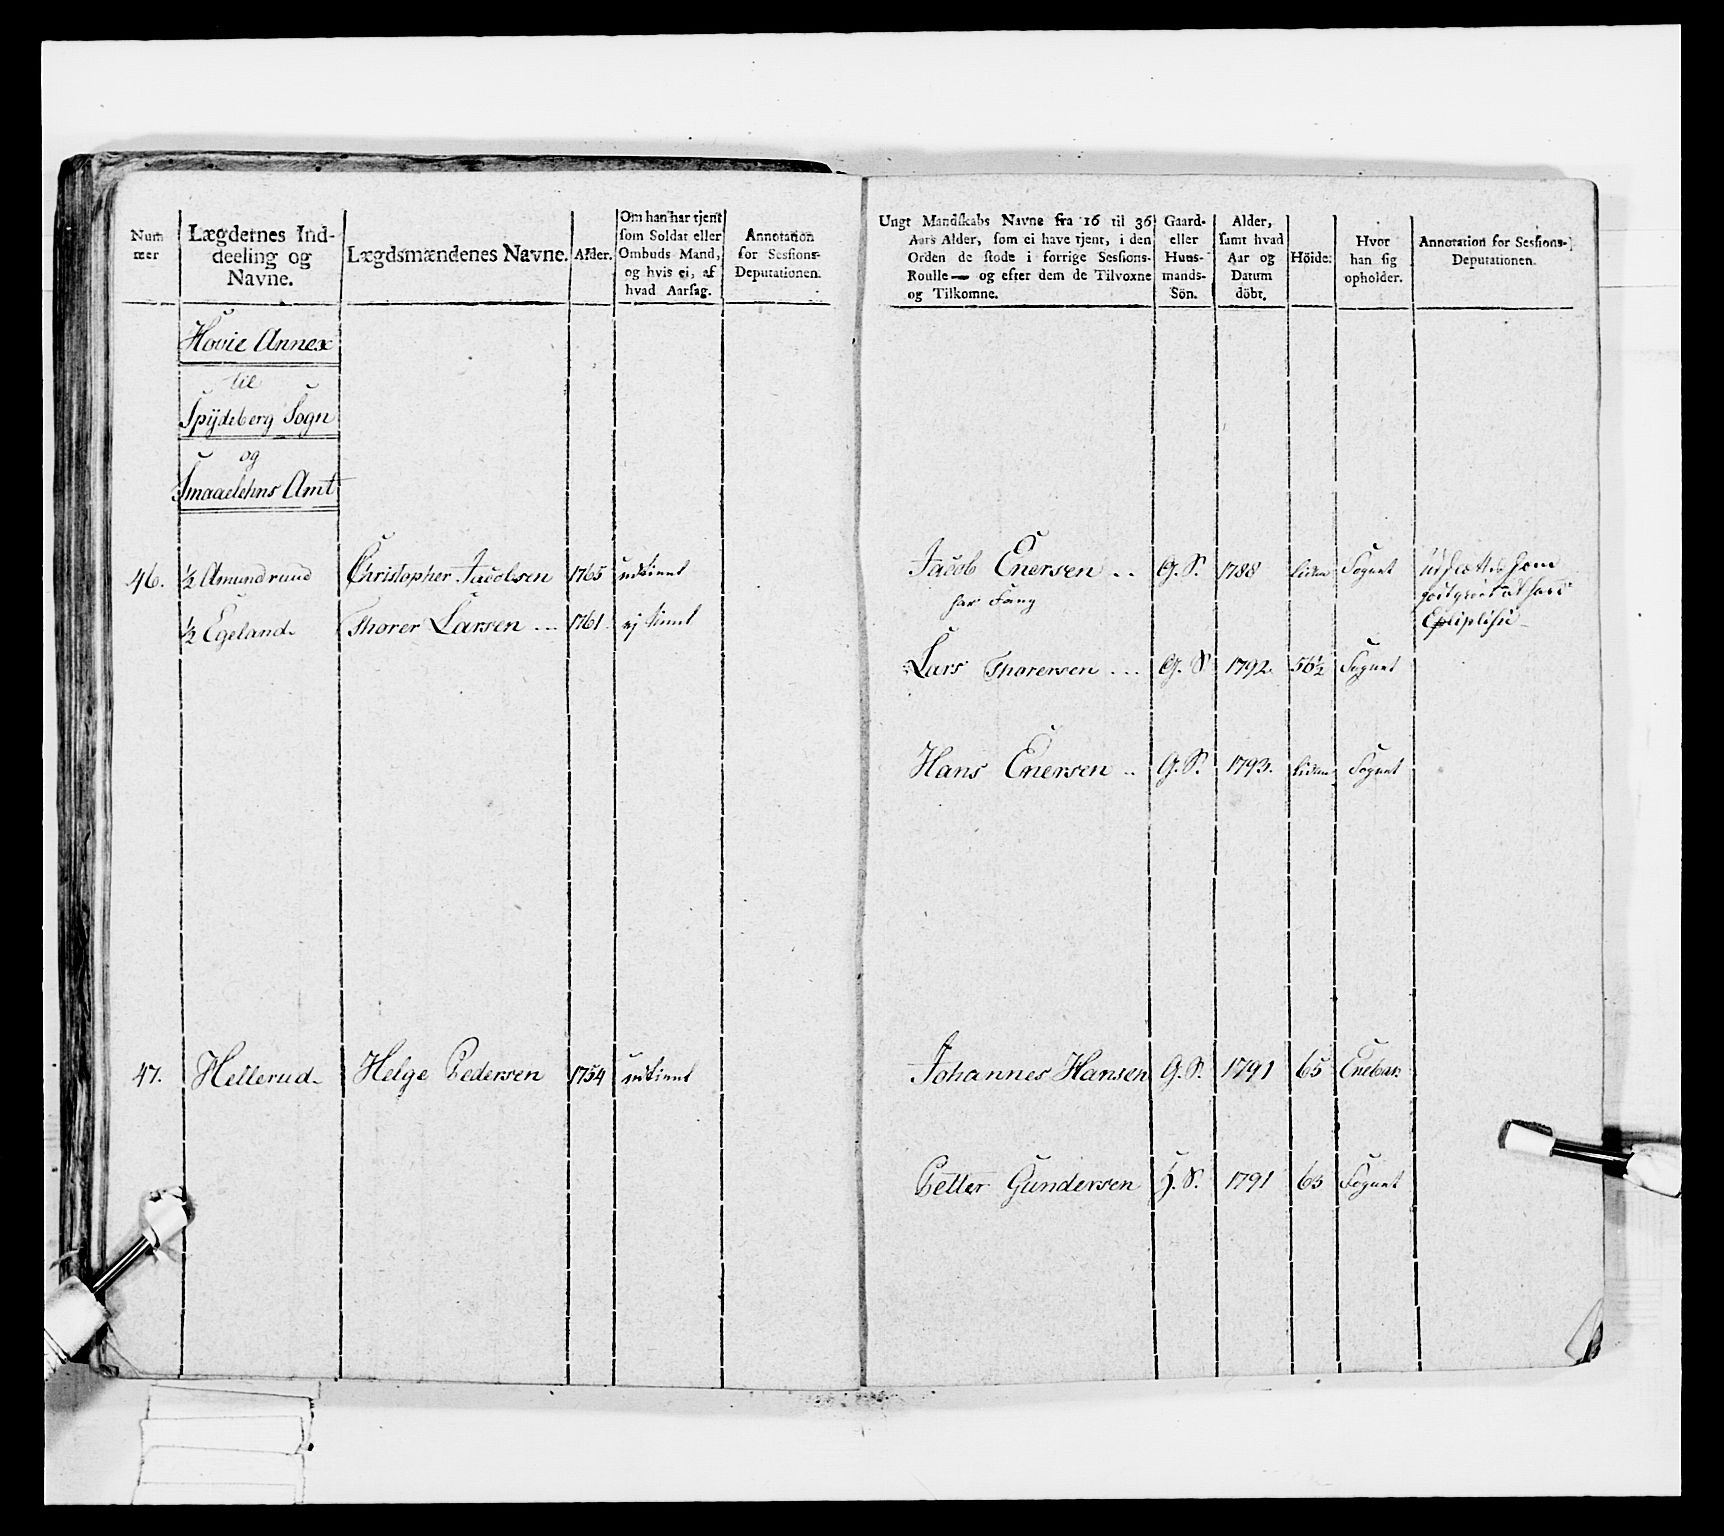 Num mer
Lægdernes Ind-
deeling og
Navne.
Lægdsmændenes Navne.
Alder.
Om han har tjent
som Soldat eller
Ombuds Mand,
og hvis ei, af
hvad Aarsag.
Annotation
for Sessions-
Deputationen.
Hovie Annex
til
Spydeberg Sogn
og
Smaaelehns Amt
46. ½ Amundrund Christopher Jacobsen 1765 udtient
½ Egeland Thorer Larsen 1761 ej tient
47. Hellerud Helge Pedersen 1754 udtient
Ungt Mandskabs Navne fra 16 til 36
Aars Alder, som ei have tjent, i den
Orden de stode i forrige Sessions-
Roulle — og efter dem de Tilvoxne
og Tilkomne.
Gaard-
eller
Huus-
mands-
Sön.
Alder,
samt hvad
Aar og
Datum
döbt.
Höide.
Hvor
han sig
opholder.
Annotation for Sessions-
Deputationen.
Jacob Enersen .. G. S. 1788 liden Sognet
Lars Thorersen ... G. S 1792. 56½ Sognet
Hans Enersen .. G. S. 1793. liden Sognet
Johannes Hansen G. S. 1791 65 Enebak
Petter Gundersen H. S. 1791 63 Sognet